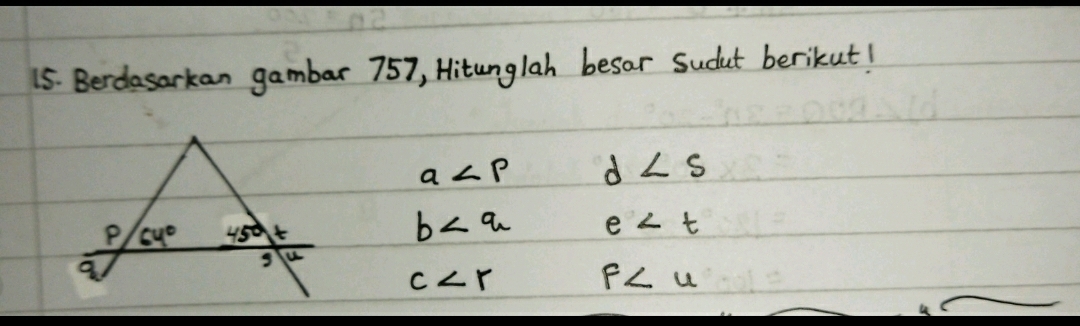 15. Berdasarkan gambar 757, Hitunglah besar sudut berikut!
a < P d ∠ s
P 64° 45° t b < q e < t
q s u c < r F ∠ u